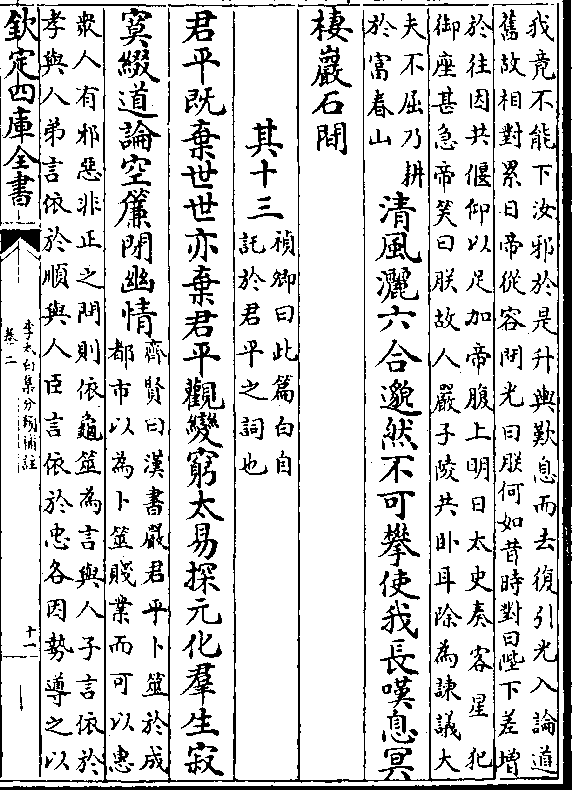 我竟不能下汝邪於是升輿歎息而去復引光入論道
舊故相對累日帝從容問光曰朕何如昔時對曰陛下差增
於往因共偃仰以足加帝腹上明日太史奏客星犯
御座甚急帝笑曰朕故人嚴子陵共卧耳除為諫議大
夫不屈乃耕
於富春山
清風灑六合邈然不可攀使我長嘆息冥
棲巖石間
其十三
禎卿曰此篇白自
託於君平之詞也
君平既棄世世亦棄君平觀變窮太易探元化羣生寂
寞綴道論空簾閉幽情
齊賢曰漢書嚴君平卜筮於成
都市以為卜筮賤業而可以惠
衆人有邪惡非正之問則依龜筮為言與人子言依於
孝與人弟言依於順與人臣言依於忠各因勢導之以
欽定四庫全書
李太白集分類補註
卷二
十一